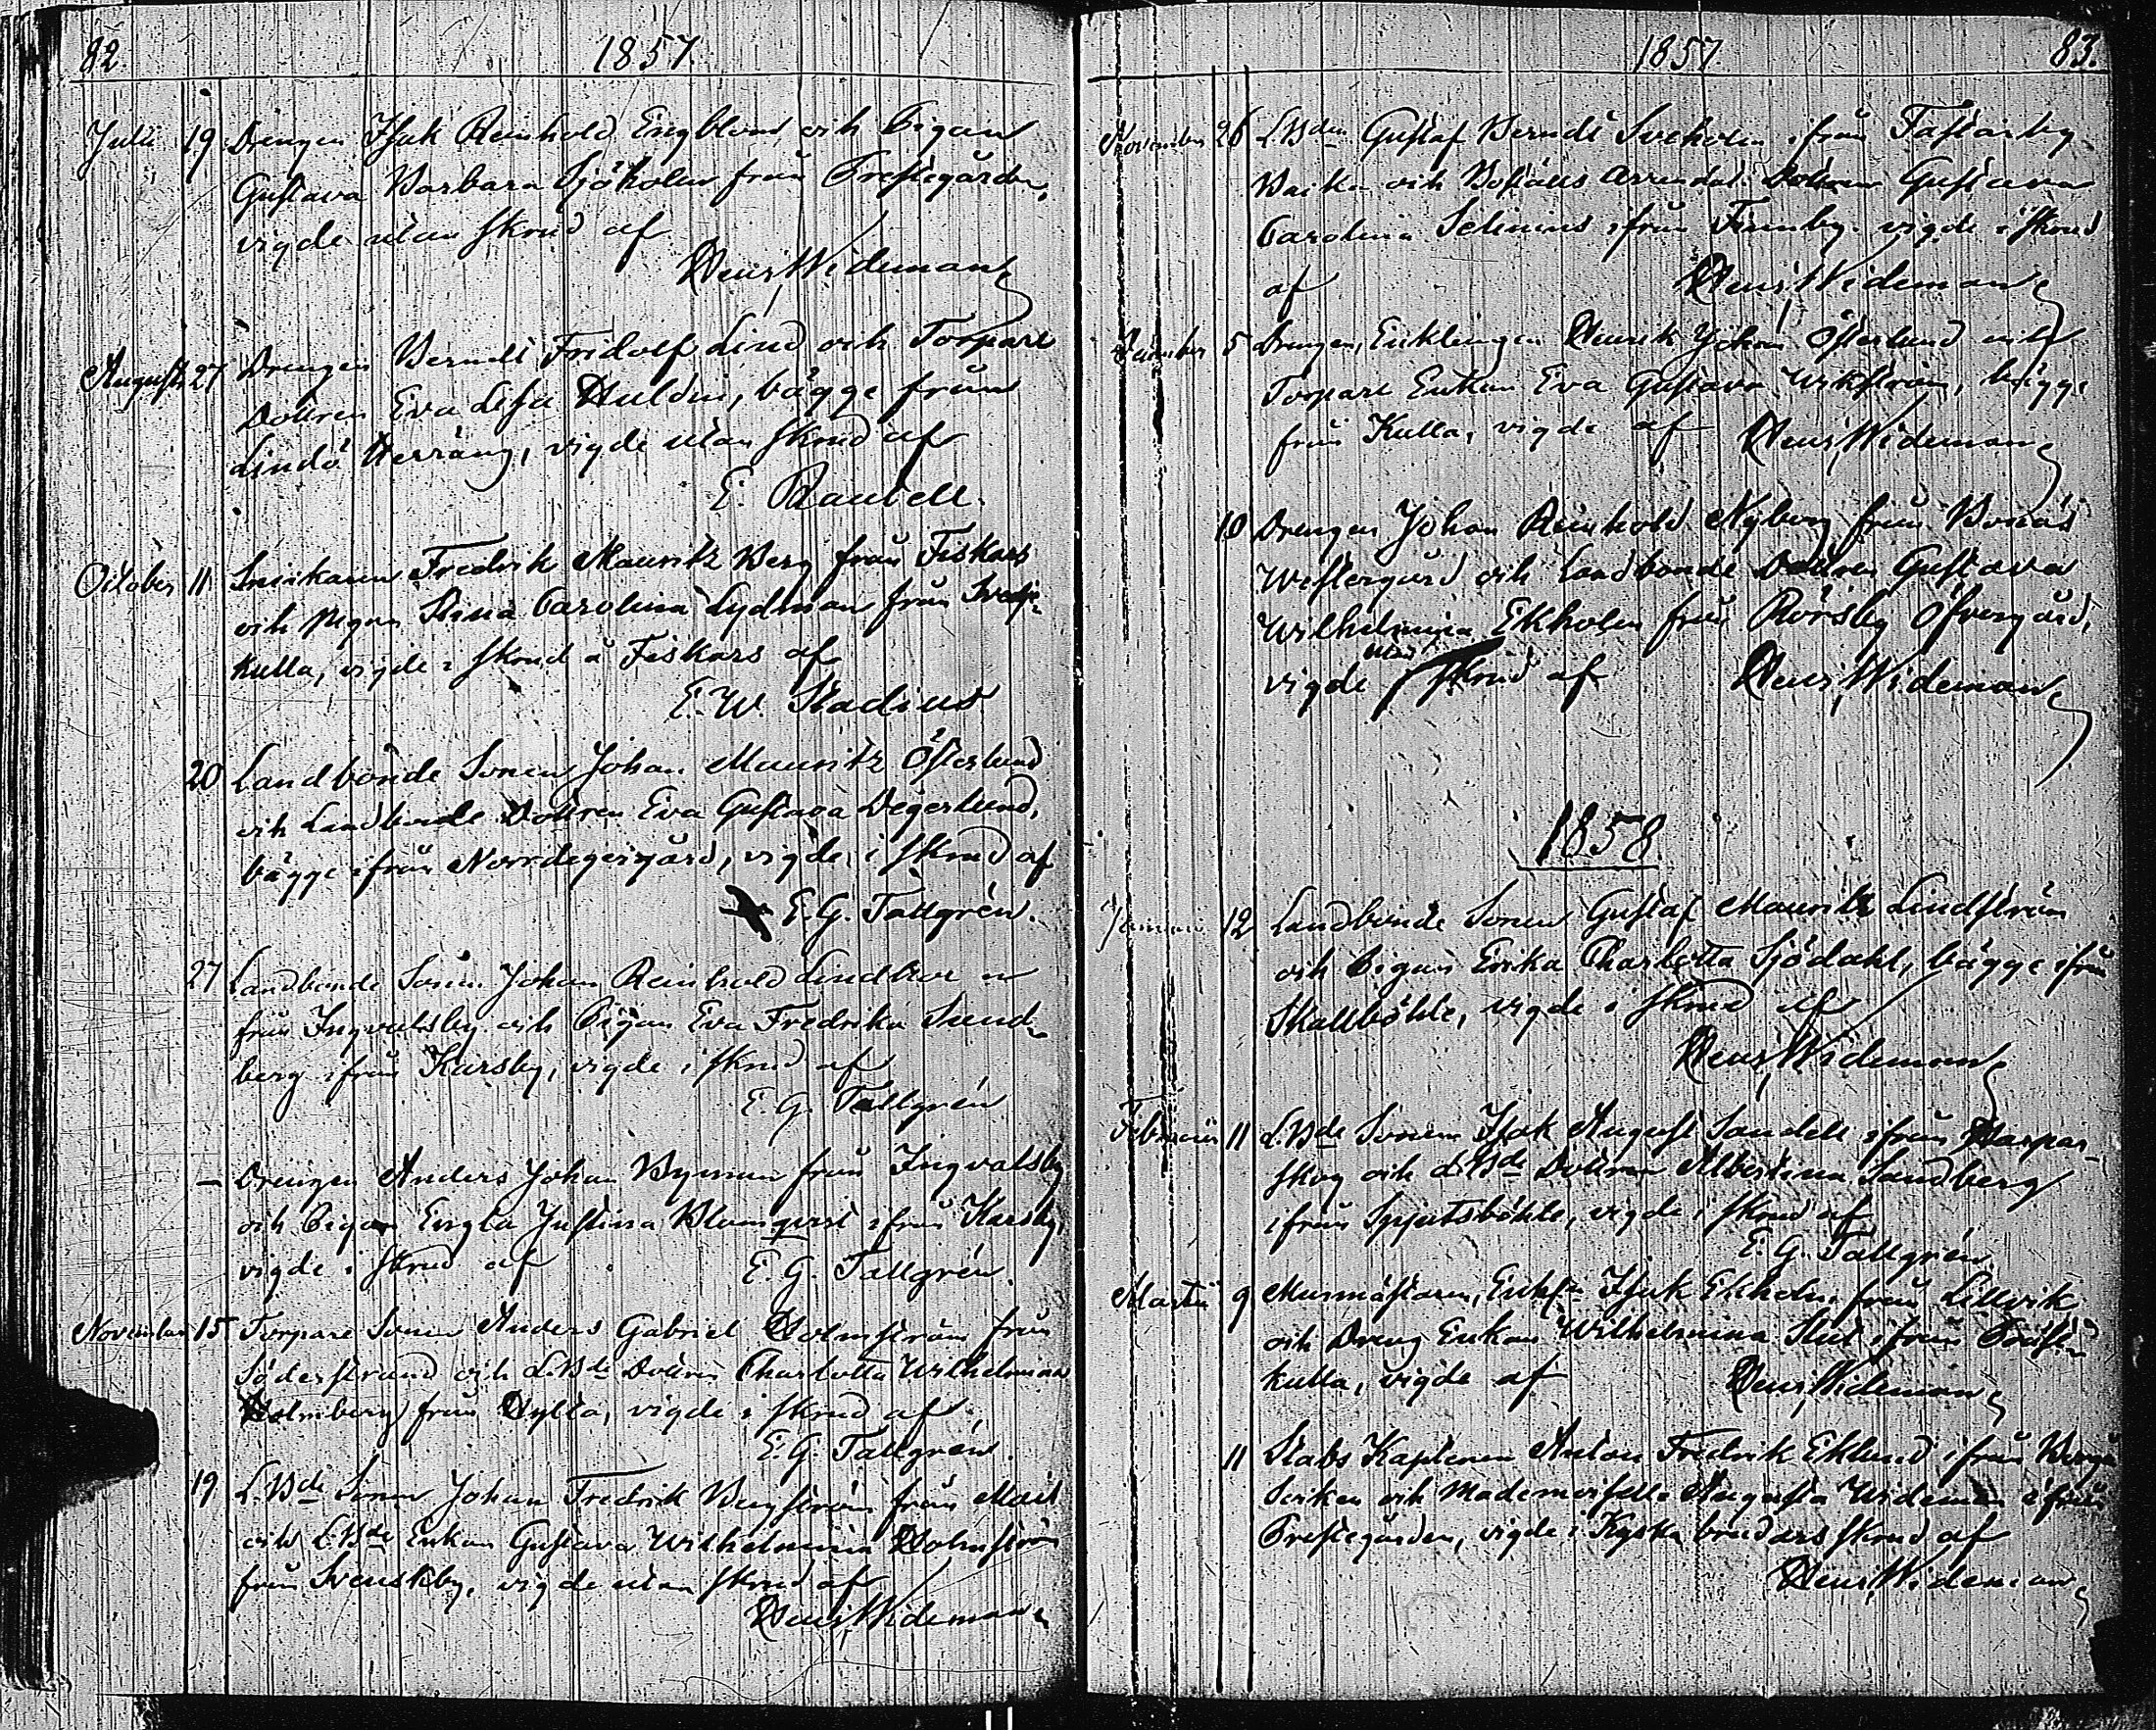 82. 1857.
Julii 19 Drengen Isak Reinhold Engblom och Pigan
Gustava Barbara Sjöholm från Prestegården,
vigde utan skrud af
Henr. Wideman
Augusti 27 Drengen Berndt Fridolf Lind och Torpare
Dottren Eva Lisa Huldin, bägge från
Lindö Herräng, vigde utan skrud af
E. Raubell.
October 11 Snickaren Fredrik Mauritz Berg från Fiskars
och Pigan Stina Carolina Lydman från
kulla, vigde i skrud å Fiskars af
E. W. Stadius
20 Landbonde Sonen Johan Mauritz Österlund
och Landbonde Dottren Eva Gustava Degerlund,
bägge ifrån Norrdegergård, vigde i skrud af
E. G. Tallgrén.
27 Landbonde Sonen Johan Reinhold
från Ingvalsby och Pigan Eva Fredrika Sund-
berg ifrån Karsby, vigde i skrud af
E. G. Tallgrén
— Drengen Anders Johan Byman från Ingvalsby
och Pigan Engla Justina Blomqvist ifrån Karsby,
vigde i skrud af E. G. Tallgrén.
November 15 Torpare Sonen Anders Gabriel Holmström från
Söderstrand och L.Bde Dottren Charlotta Wilhelmina
Holmberg från Hylta, vigde i skrud af
E. G. Tallgrén.
19 L.Bde Sonen Johan Fredrik Bergström från
och L.Bde Enkan Gustava Wilhelmina Holmström
från Svenskby, vigde utan skrud af
Henr. Wideman
1857 83.
November 26 L.Bden Gustaf Berndt Sveholm ifrån Fastarby
Backa och Boställs Arrendat. Dottren Gustava
Carolina Selenius ifrån Finnby vigde i skrud
af Henr. Wideman
December 5 Drengen, Enklingen Henrik Johan Österlund och
Torpare Enkan Eva Gustava Wikström, bägge
från Kulla, vigde af Henr. Wideman
10 Drengen Johan Reinhold Nyborg från Bonäs
Westergård och Landbonde Dottren Gustava
Wilhelmina Ekholm från Rörsby Öfvergård,
vigde utan skrud af Henr. Wideman
1858.
Januari 12 Landbonde Sonen Gustaf Mauritz Lindström
och Pigan Erika Charlotta Sjödahl, bägge ifrån
Skallböhle, vigde i skrud af
Henr. Wideman
Februarii 11 L.Bde Sonen Isak August Sandell ifrån Harpar-
skog och L.Bde Dottren Albertina Sandberg
ifrån Spjutsböhle, vigde i skrud af
E. G. Tallgrén.
Martii 9 Murmästaren, Enkl.n Isak Ekholm från Lillvik
och Dreng Enkan Wilhelmina ifrån
kulla, vigde af Henr. Wideman
11 Stabs Kaptenen Anton Fredrik Eklund ifrån
och Mademoiselle Augusta Wideman ifrån
Prestegården, vigde i Kyrkobrudars skrud af
Henr. Wideman